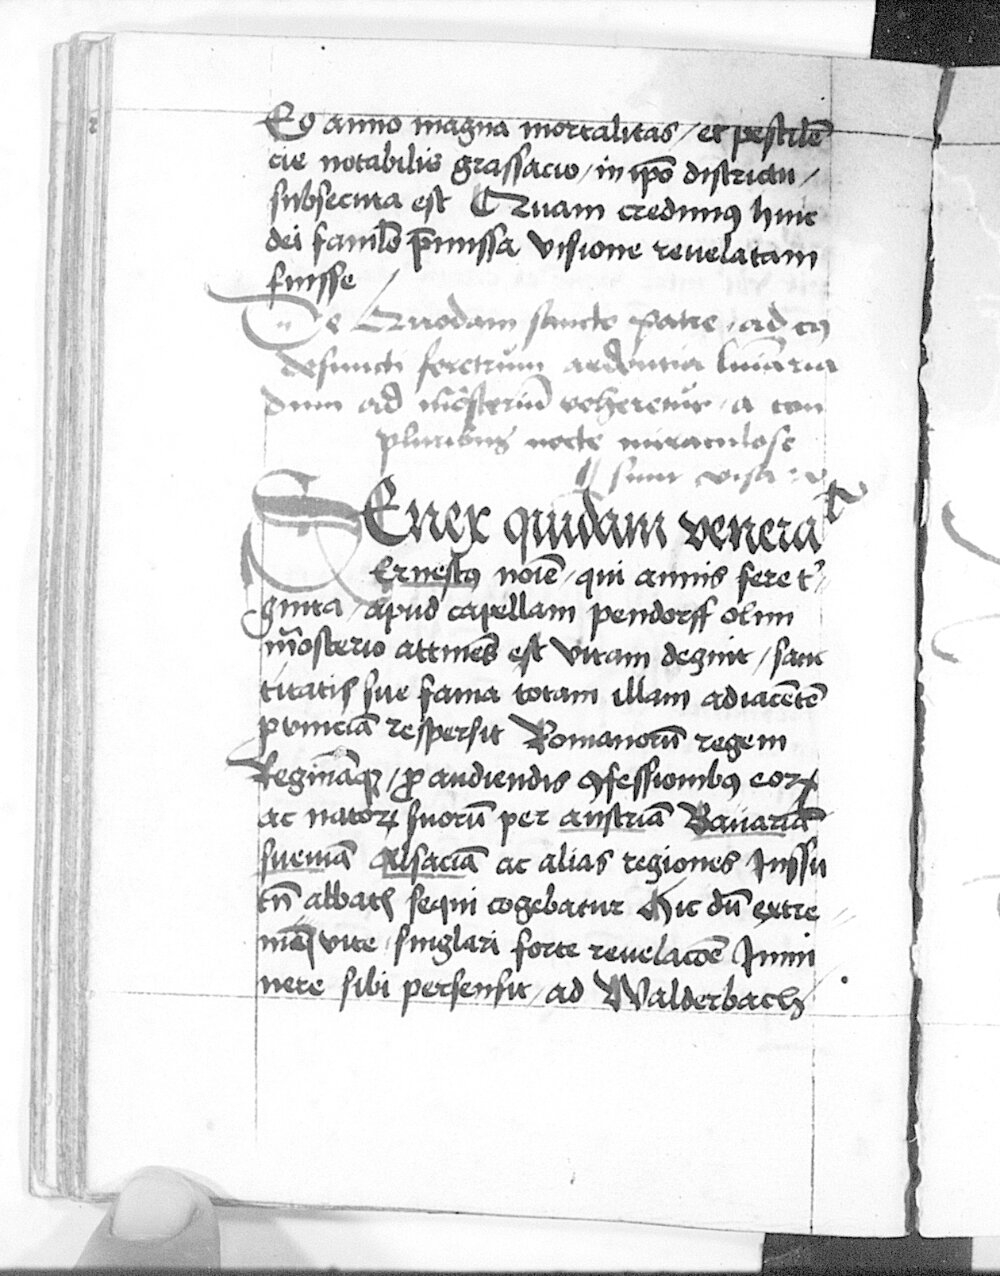 Eo anno magna mortalitas / et pestilē
cie notabilis grassacio / in ip̄o districtu /
subsecuta est Quam credimꝰ huic
dei famulo p̄missa visione reuelatam
fuisse /
De Quodam sancto patre, ad cuiꝰ
defuncti feretrum ardentia luīaria
dum ad mōsteriū veheretur, a com
pluribus nocte miraculose
sunt visa
SEnex quidam venera
Ernestꝰ noīe / qui annis fere t'
ginta / apud capellam pendorff olim
mōsterio attinēs est vitam deguit / sanc
titatis sue fama totam illam adiacētē
ꝓuinciā respersit Romanorū regem
Regināqꝫ / ꝓ audiendis ꝯfessionibꝰ eoꝝ
ac natoꝝ suorū per austriā Bauariā
sueuiā Alsaciā ac alias regiones Jussu
tn̄ abbatis sequi cogebatur Hic dū extre
mū vite singlari forte reuelacōe Jmmi
nere sibi persensit / ad Walderbach